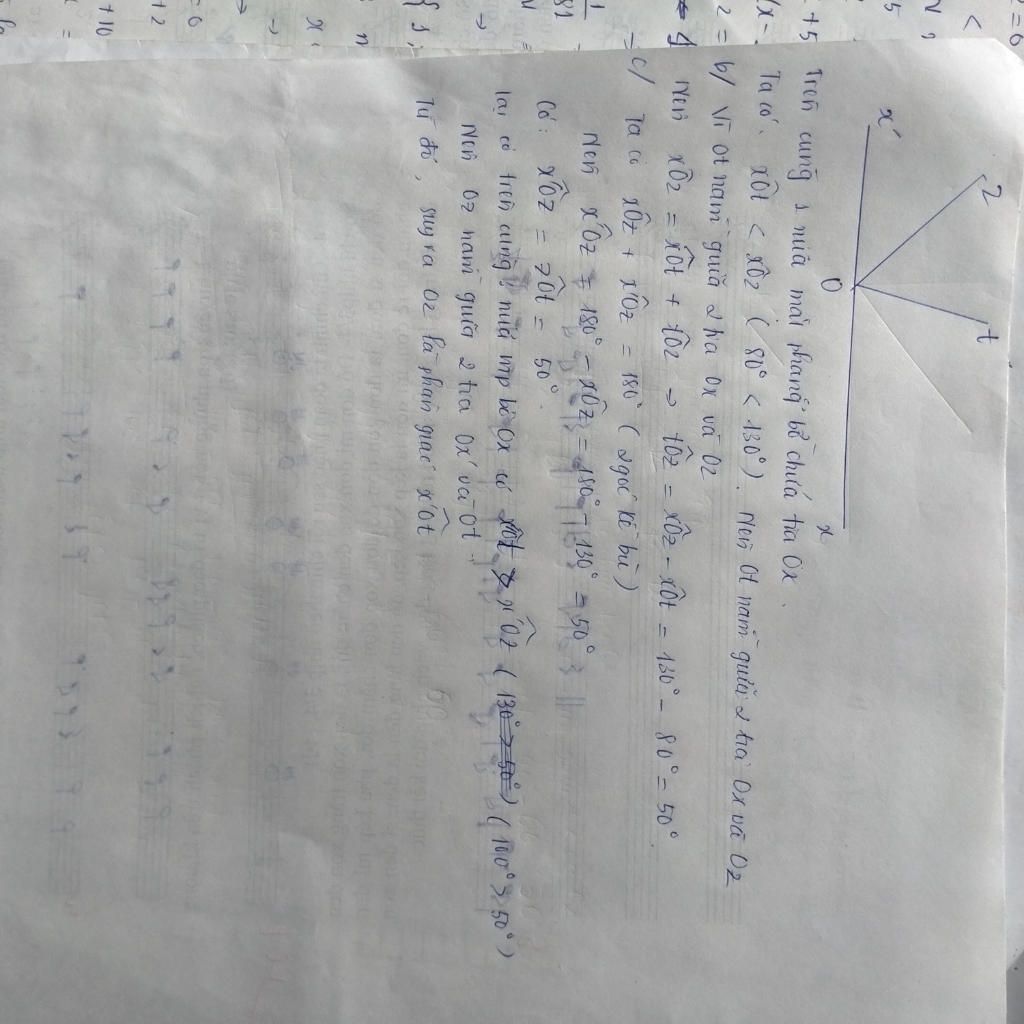 x'
z
t
O
x
Trên cùng 1 nửa mặt phẳng bờ chứa tia Ox.
Ta có: xÔt < xÔz (80° < 130°). Nên Ot nằm giữa 2 tia Ox và Oz
b/ Vì Ot nằm giữa 2 tia Ox và Oz
Nên xÔz = xÔt + tÔz → tÔz = xÔz - xÔt = 130° - 80° = 50°
c/ Ta có xÔz + x'Ôz = 180° (2 góc kề bù)
Nên x'Ôz = 180° - xÔz = 180° - 130° = 50°
Có: x'Ôz = zÔt = 50°
lại có trên cùng 1 nửa mp bờ Ox có x'Ôt > x'Ôz (130° > 50°) (100° > 50°)
Nên Oz nằm giữa 2 tia Ox' và Ot
Từ đó, suy ra Oz là phân giác x'Ôt